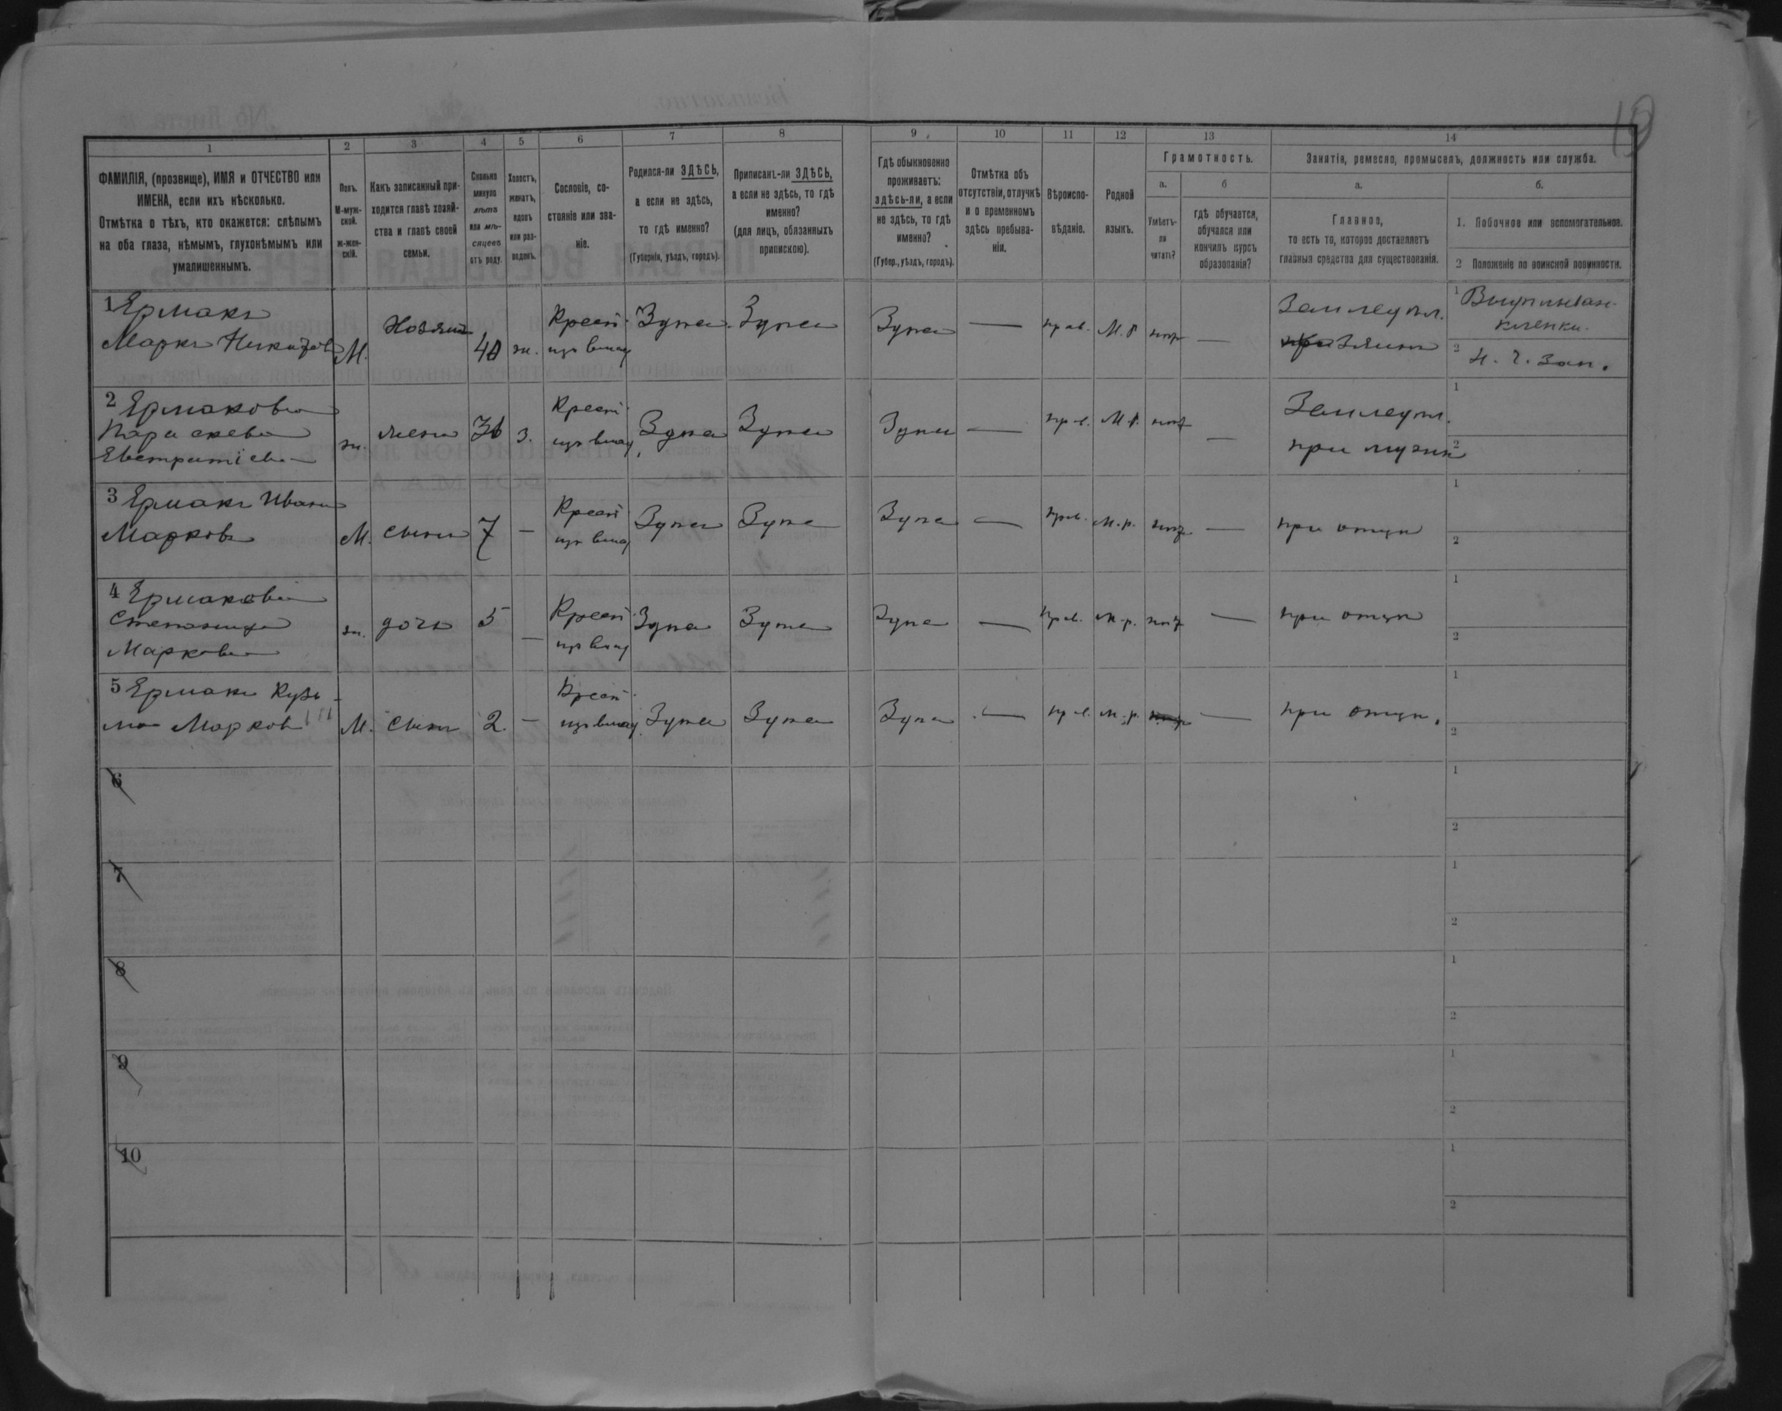 19
1 2 3 4 5 6 7 8 9 10 11 12 13 14
ФАМИЛІЯ, (прозвище), ИМЯ и ОТЧЕСТВО или
ИМЕНА, если ихъ нѣсколько.
Отмѣтка о тѣхъ, кто окажется: слѣпымъ
на оба глаза, нѣмымъ, глухонѣмымъ или
умалишеннымъ.
Полъ.
М-муж-
ской.
ж-жен-
скій.
Какъ записанный при-
ходится главѣ хозяй-
ства и главѣ своей
семьи.
Сколько
минуло
лѣтъ
или мѣ-
сяцевъ
отъ роду.
Холостъ,
женатъ,
вдовъ
или раз-
веденъ.
Сословіе, со-
стояніе или зва-
ніе.
Родился-ли ЗДѢСЬ,
а если не здѣсь,
то гдѣ именно?
(Губернія, уѣздъ, городъ).
Приписанъ-ли ЗДѢСЬ,
а если не здѣсь, то гдѣ
именно?
(для лицъ, обязанныхъ
припискою).
Гдѣ обыкновенно
проживаетъ:
здѣсь-ли, а если
не здѣсь, то гдѣ
именно?
(Губер., уѣздъ, городъ).
Отмѣтка объ
отсутствіи, отлучкѣ
и о временномъ
здѣсь пребыва-
ніи.
Вѣроиспо-
вѣданіе.
Родной
языкъ.
Грамотность.
а.
Умѣетъ-
ли
читать?
б
гдѣ обучается,
обучался или
кончилъ курсъ
образованія?
Занятія, ремесло, промыселъ, должность или служба.
а.
Главное,
то есть то, которое доставляетъ
главныя средства для существованія.
б.
1. Побочное или вспомогательное.
2 Положеніе по воинской повинности.
1 Ермакъ
Маркъ М. Хозяинъ 40 ж. Крест. изъ влад Здѣсь Здѣсь Здѣсь — прав. М. Р. нѣтъ — Землед.
Хозяинъ
1
2
2 Ермакова
Параскева
Евстратіева ж. жена 36 з. Крест. изъ влад Здѣсь Здѣсь Здѣсь — прав. М. Р. нѣтъ — Землед.
при мужѣ
1
2
3 Ермакъ Иванъ
Марковъ М. сынъ 7 — Крест изъ влад Здѣсь Здѣсь Здѣсь — прав. м. р. нѣтъ — при отцѣ
1
2
4 Ермакова
Степанида
Маркова ж. дочь 5 — Крест изъ влад Здѣсь Здѣсь Здѣсь — прав. м. р. нѣтъ — при отцѣ
1
2
5 Ермакъ Кузь-
ма Марковъ М. сынъ 2 — Крест изъ влад Здѣсь Здѣсь Здѣсь — прав. м. р. нѣтъ — при отцѣ.
1
2
6
1
2
7
1
2
8
1
2
9
1
2
10
1
2